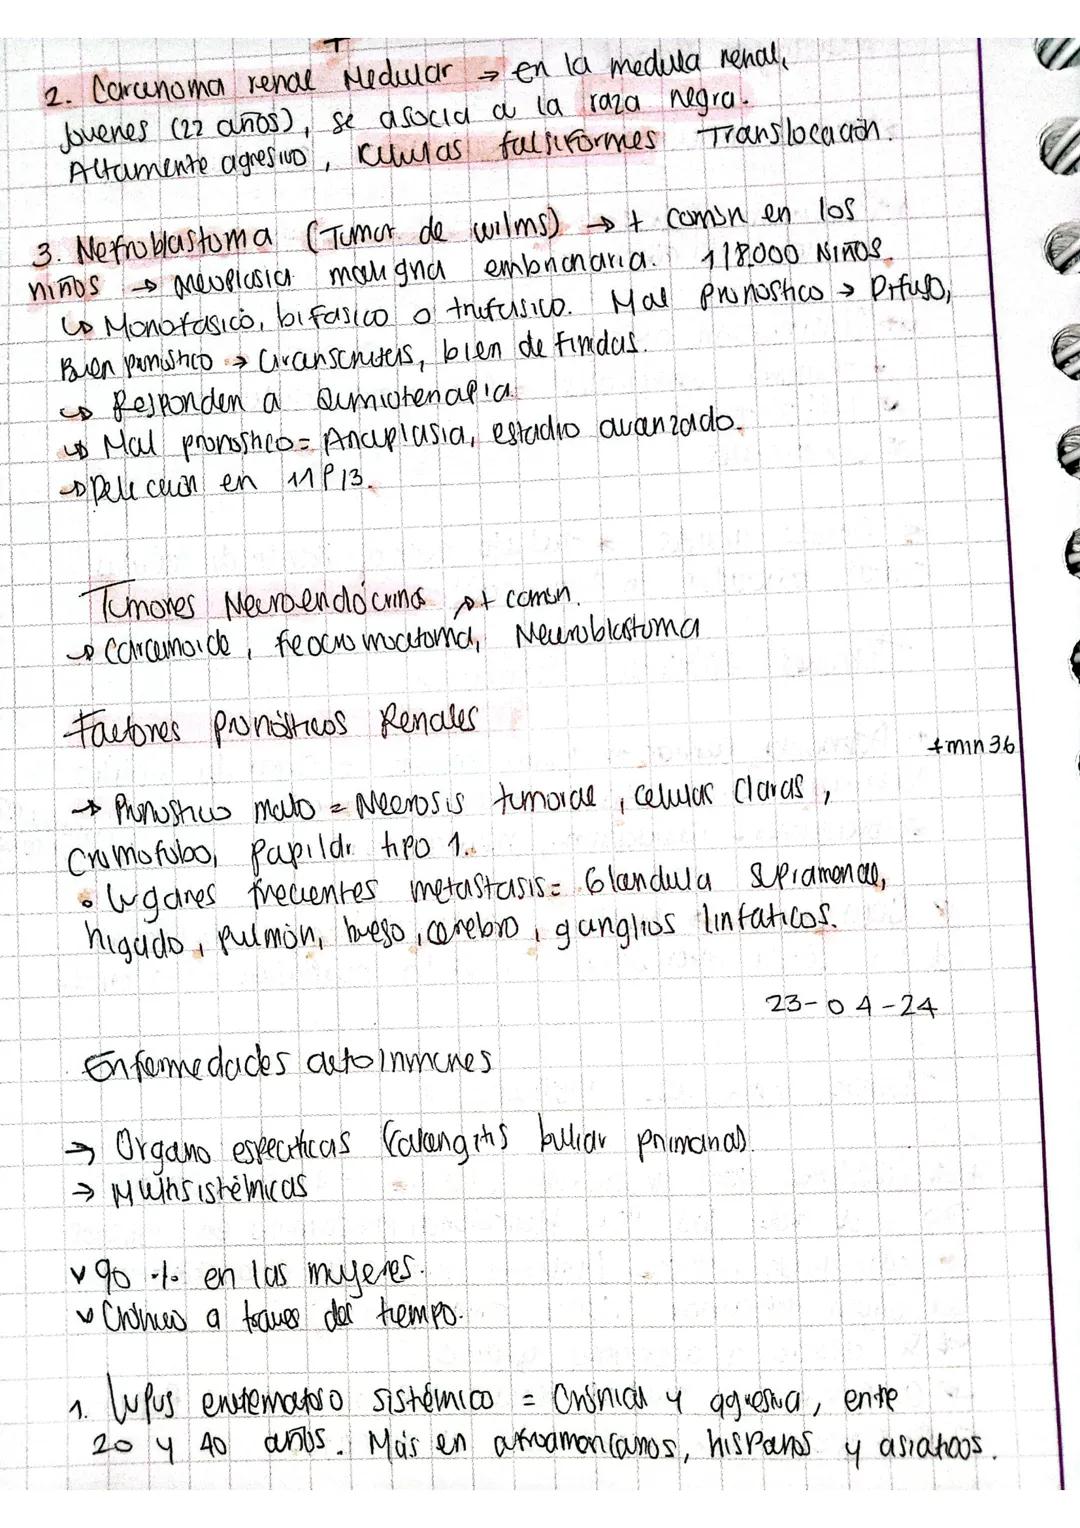 2. Carcinoma renal Medular → en la medula renal,
Jovenes (22 años), se asocia a la raza negra.
Altamente agresivo, celulas falsiformes Translocación.
3. Nefroblastoma (Tumor de wilms) → + común en los
niños → Neoplasia maligna embrionaria. 1/8.000 NIÑOS.
↳ Monofasico, bifasico o trifasico. Mal pronostico → Difuso,
Buen pronostico → Circunscritas, bien definidas.
↳ Responden a Quimioterapia.
↳ Mal pronostico = Anaplasia, estadio avanzado.
→ Delección en 11P13.
Tumores Neuroendócrinos → + común.
→ Carcinoide, feocromocitoma, Neuroblastoma
Factores pronósticos Renales
+min 36
→ Pronostico malo = Necrosis tumoral, celulas Claras,
Cromofobo, papilar tipo 1.
• Lugares frecuentes metastasis = Glandula suprarrenal,
higado, pulmón, hueso, cerebro, ganglios linfaticos.
23-04-24
Enfermedades autoinmunes
→ Organo especificas (Colangitis biliar primaria).
→ Multisistémicas
✓ 90 % en las mujeres.
✓ Crónico a traves del tiempo.
1. Lupus eritematoso sistémico = Crónica y agresiva, entre
20 y 40 años. Más en afroamericanos, hispanos y asiaticos.